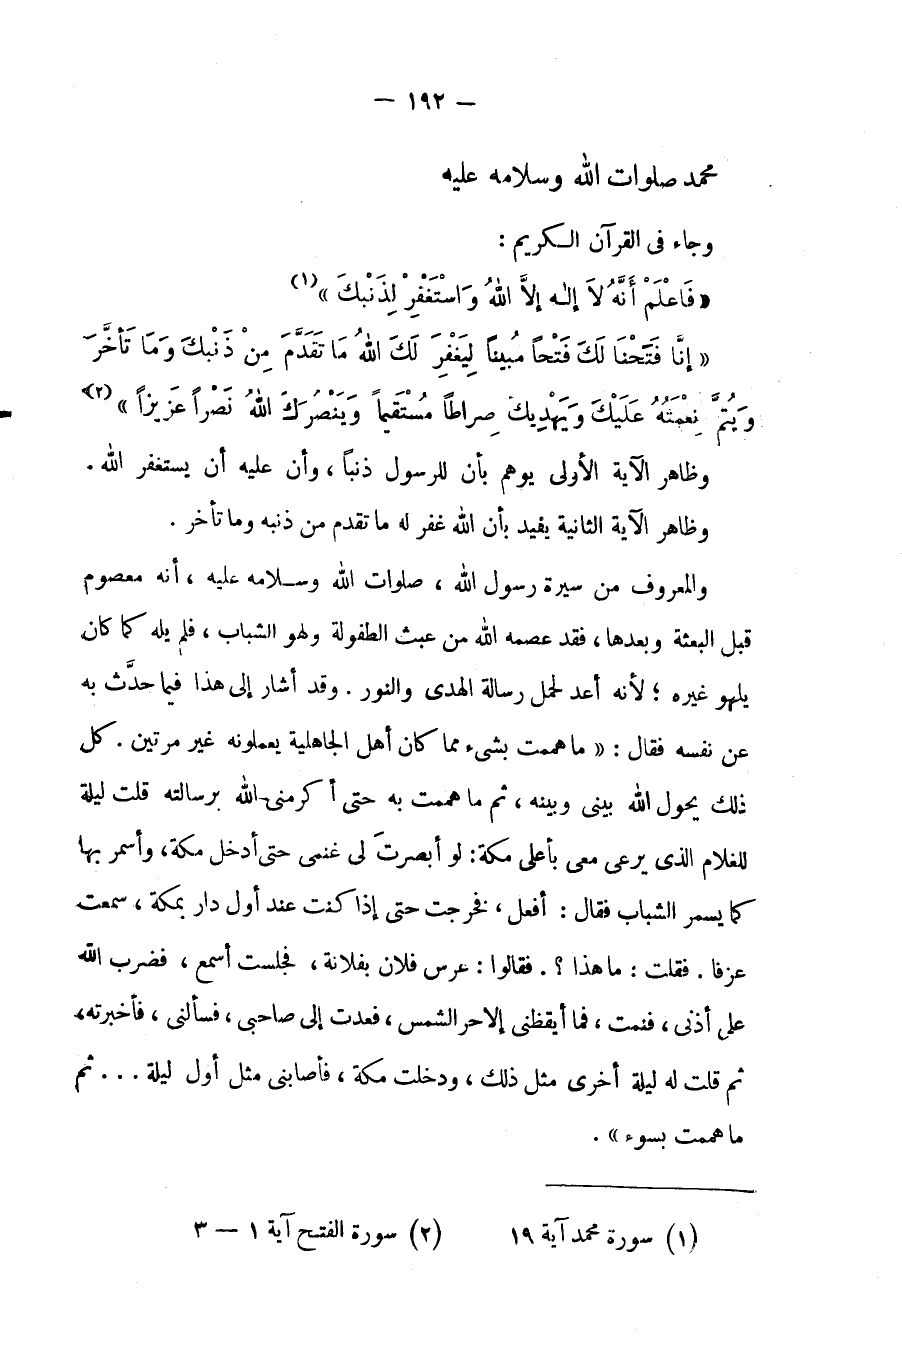 — ١٩٢ —
محمد صلوات الله وسلامه عليه
وجاء فى القرآن الـكريم :
« فَاعْلَمْ أَنَّهُ لاَ إلـٰه إلاَّ اللهُ وَاسْتَغْفِرْ لِذَنْبِكَ »(١)
« إنَّا فَتَحْنَا لَكَ فَتْحاً مُبيناً لِيَغْفِرَ لَكَ اللهُ مَا تَقَدَّمَ مِنْ ذَنْبِكَ وَمَا تَأَخَّرَ
وَيُتِمَّ نِعْمَتَهُ عَلَيْكَ وَيَهْدِيكَ صِرَاطاً مُسْتَقِيماً وَيَنْصُرَكَ اللهُ نَصْراً عَزِيزاً »(٢)
وظاهر الآية الأولى يوهم بأن للرسول ذنباً ، وأن عليه أن يستغفر الله .
وظاهر الآية الثانية يفيد بأن الله غفر له ما تقدم من ذنبه وما تأخر .
والمعروف من سيرة رسول الله ، صلوات الله وسـلامه عليه ، أنه معصوم
قبل البعثة وبعدها ، فقد عصمه الله من عبث الطفولة ولهو الشباب ، فلم يله كما كان
يلهو غيره ؛ لأنه أعد لحمل رسالة الهدى والنور . وقد أشار إلى هذا فيما حدَّث به
عن نفسه فقال : « ما هممت بشىء مما كان أهل الجاهلية يعملونه غير مرتين . كل
ذلك يحول الله بينى وبينه ، ثم ما هممت به حتى أكرمنى الله برسالته قلت ليلة
للغلام الذى يرعى معى بأعلى مكة : لو أبصرتَ لى غنمى حتى أدخل مكة ، وأسمر بها
كما يسمر الشباب فقال : أفعل ، فخرجت حتى إذا كنت عند أول دار بمكة ، سمعت
عزفا . فقلت : ما هذا ؟ . فقالوا : عرس فلان بفلانة ، فجلست أسمع ، فضرب الله
على أذنى ، فنمت ، فما أيقظنى إلا حر الشمس ، فعدت إلى صاحبى ، فسألنى ، فأخبرته ،
ثم قلت له ليلة أخرى مثل ذلك ، ودخلت مكة ، فأصابنى مثل أول ليلة . . . ثم
ما هممت بسوء » .
(١) سورة محمد آية ١٩ (٢) سورة الفتح آية ١ — ٣